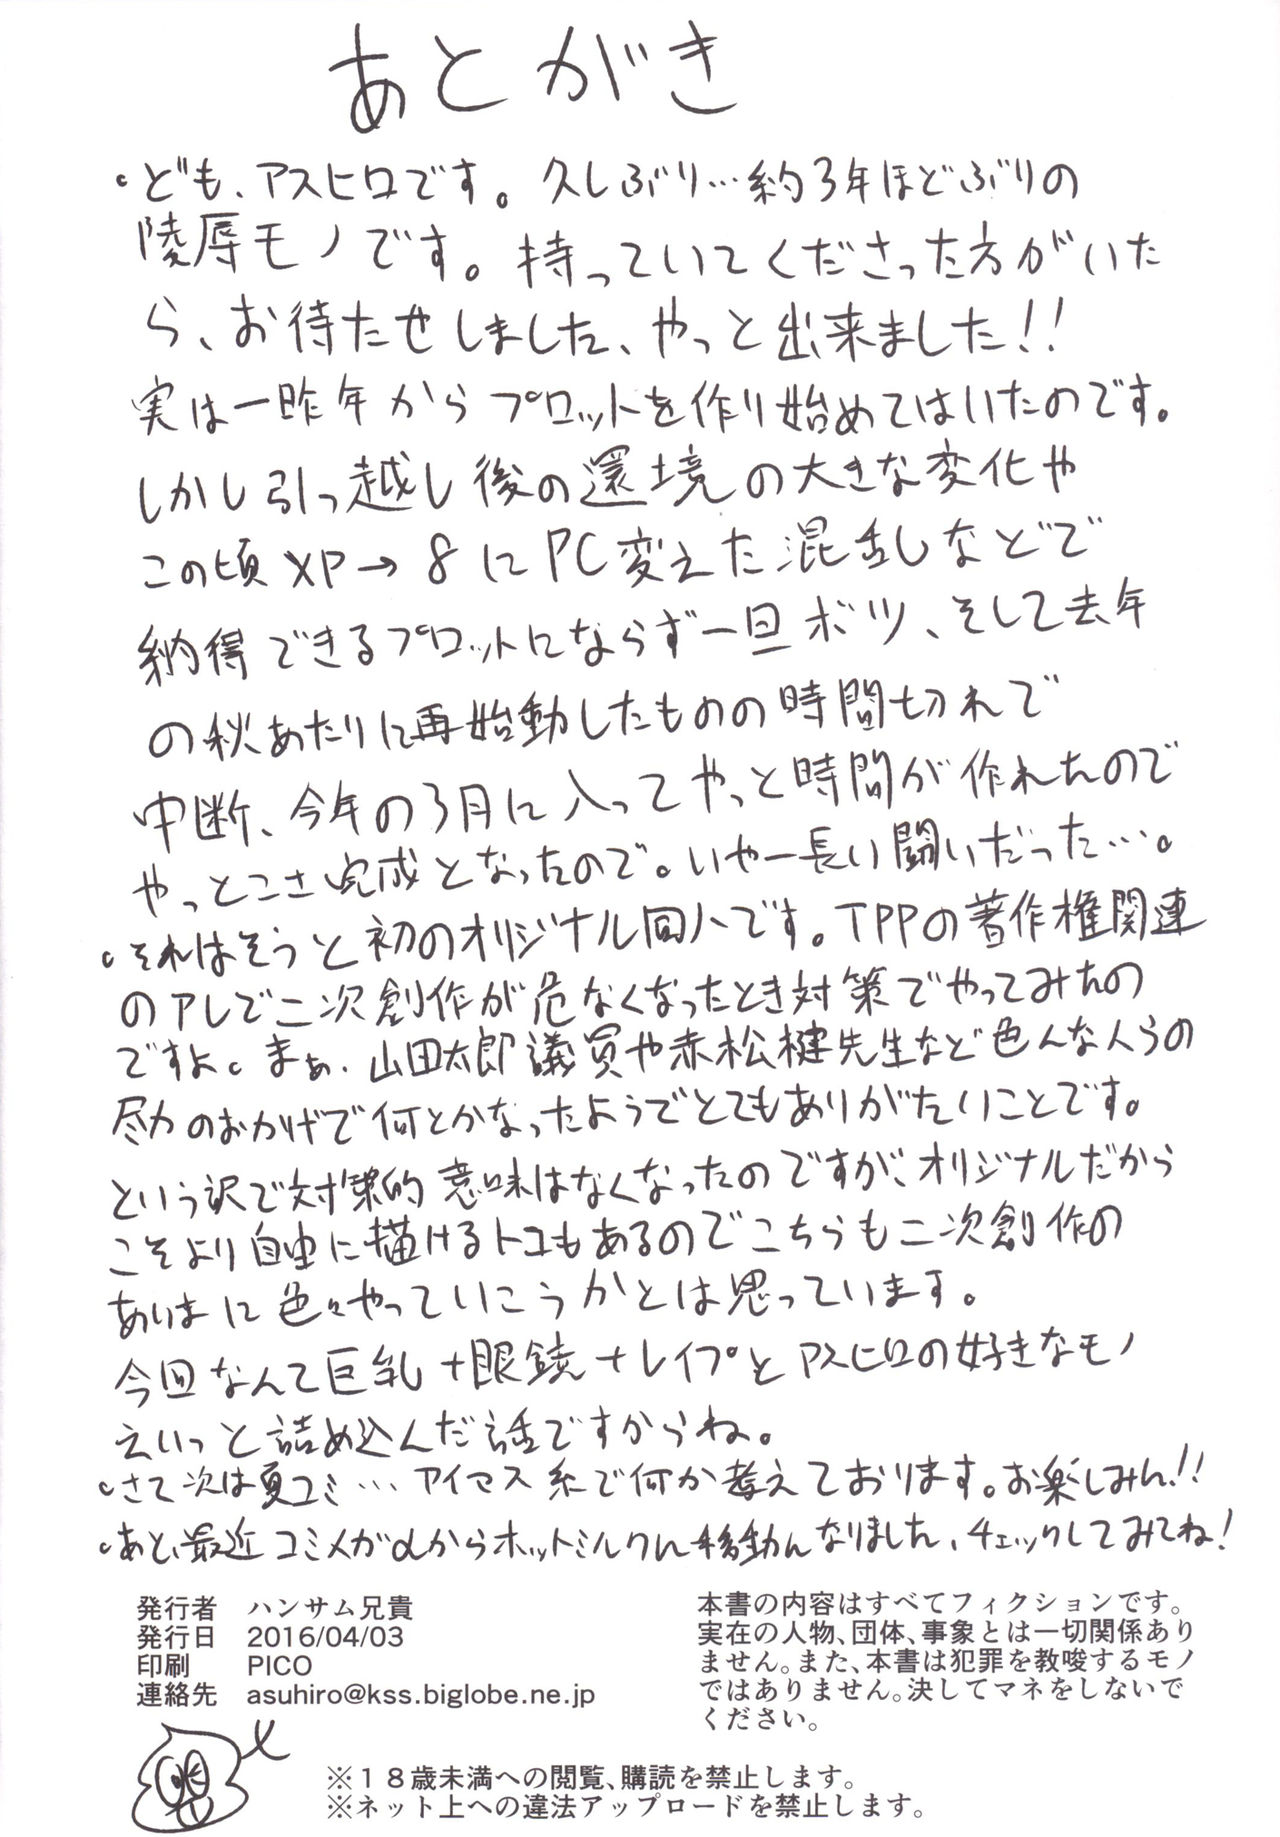 あとがき
・ども、アスヒロです。久しぶり…約3年ほどぶりの
陵辱モノです。持っていてくださった方がいた
ら、お待たせしました、やっと出来ました!!
実は一昨年からプロットを作り始めてはいたのです。
しかし引っ越し後の環境の大きな変化や
この頃XP→8にPC変えた混乱しなどで
納得できるプロットにならず一旦ボツ、そして去年
の秋あたりに再始動したものの時間切れで
中断、今年の3月に入ってやっと時間が作れたので
やっとこさ完成となったので。いやー長い闘いだった…。
・それはそうと初のオリジナル同人です。TPPの著作権関連
のアレで二次創作が危なくなったとき対策でやってみたの
ですよ。まぁ、山田太郎議員や赤松健先生など色んな人らの
尽力のおかげで何とかなったようでとてもありがたいことです。
という訳で対策的意味はなくなったのですが、オリジナルだから
こそより自由に描けるトコもあるのでこちらも二次創作の
あいまに色々やっていこうかとは思っています。
今回なんて巨乳+眼鏡+レイプとアスヒロの好きなモノ
えいっと詰め込んだ話ですからね。
・さて次は夏コミ…アイマス系で何か考えております。お楽しみに!!
・あと、最近コミメガαからホットミルクに移動になりました、チェックしてみてね!
発行者 ハンサム兄貴
発行日 2016/04/03
印刷 PICO
連絡先 asuhiro@kss.biglobe.ne.jp
本書の内容はすべてフィクションです。
実在の人物、団体、事象とは一切関係あり
ません。また、本書は犯罪を教唆するモノ
ではありません。決してマネをしないで
ください。
※18歳未満への閲覧、購読を禁止します。
※ネット上への違法アップロードを禁止します。